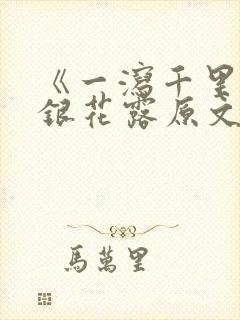 《一瀉千里
銀花露原文
馬萬里